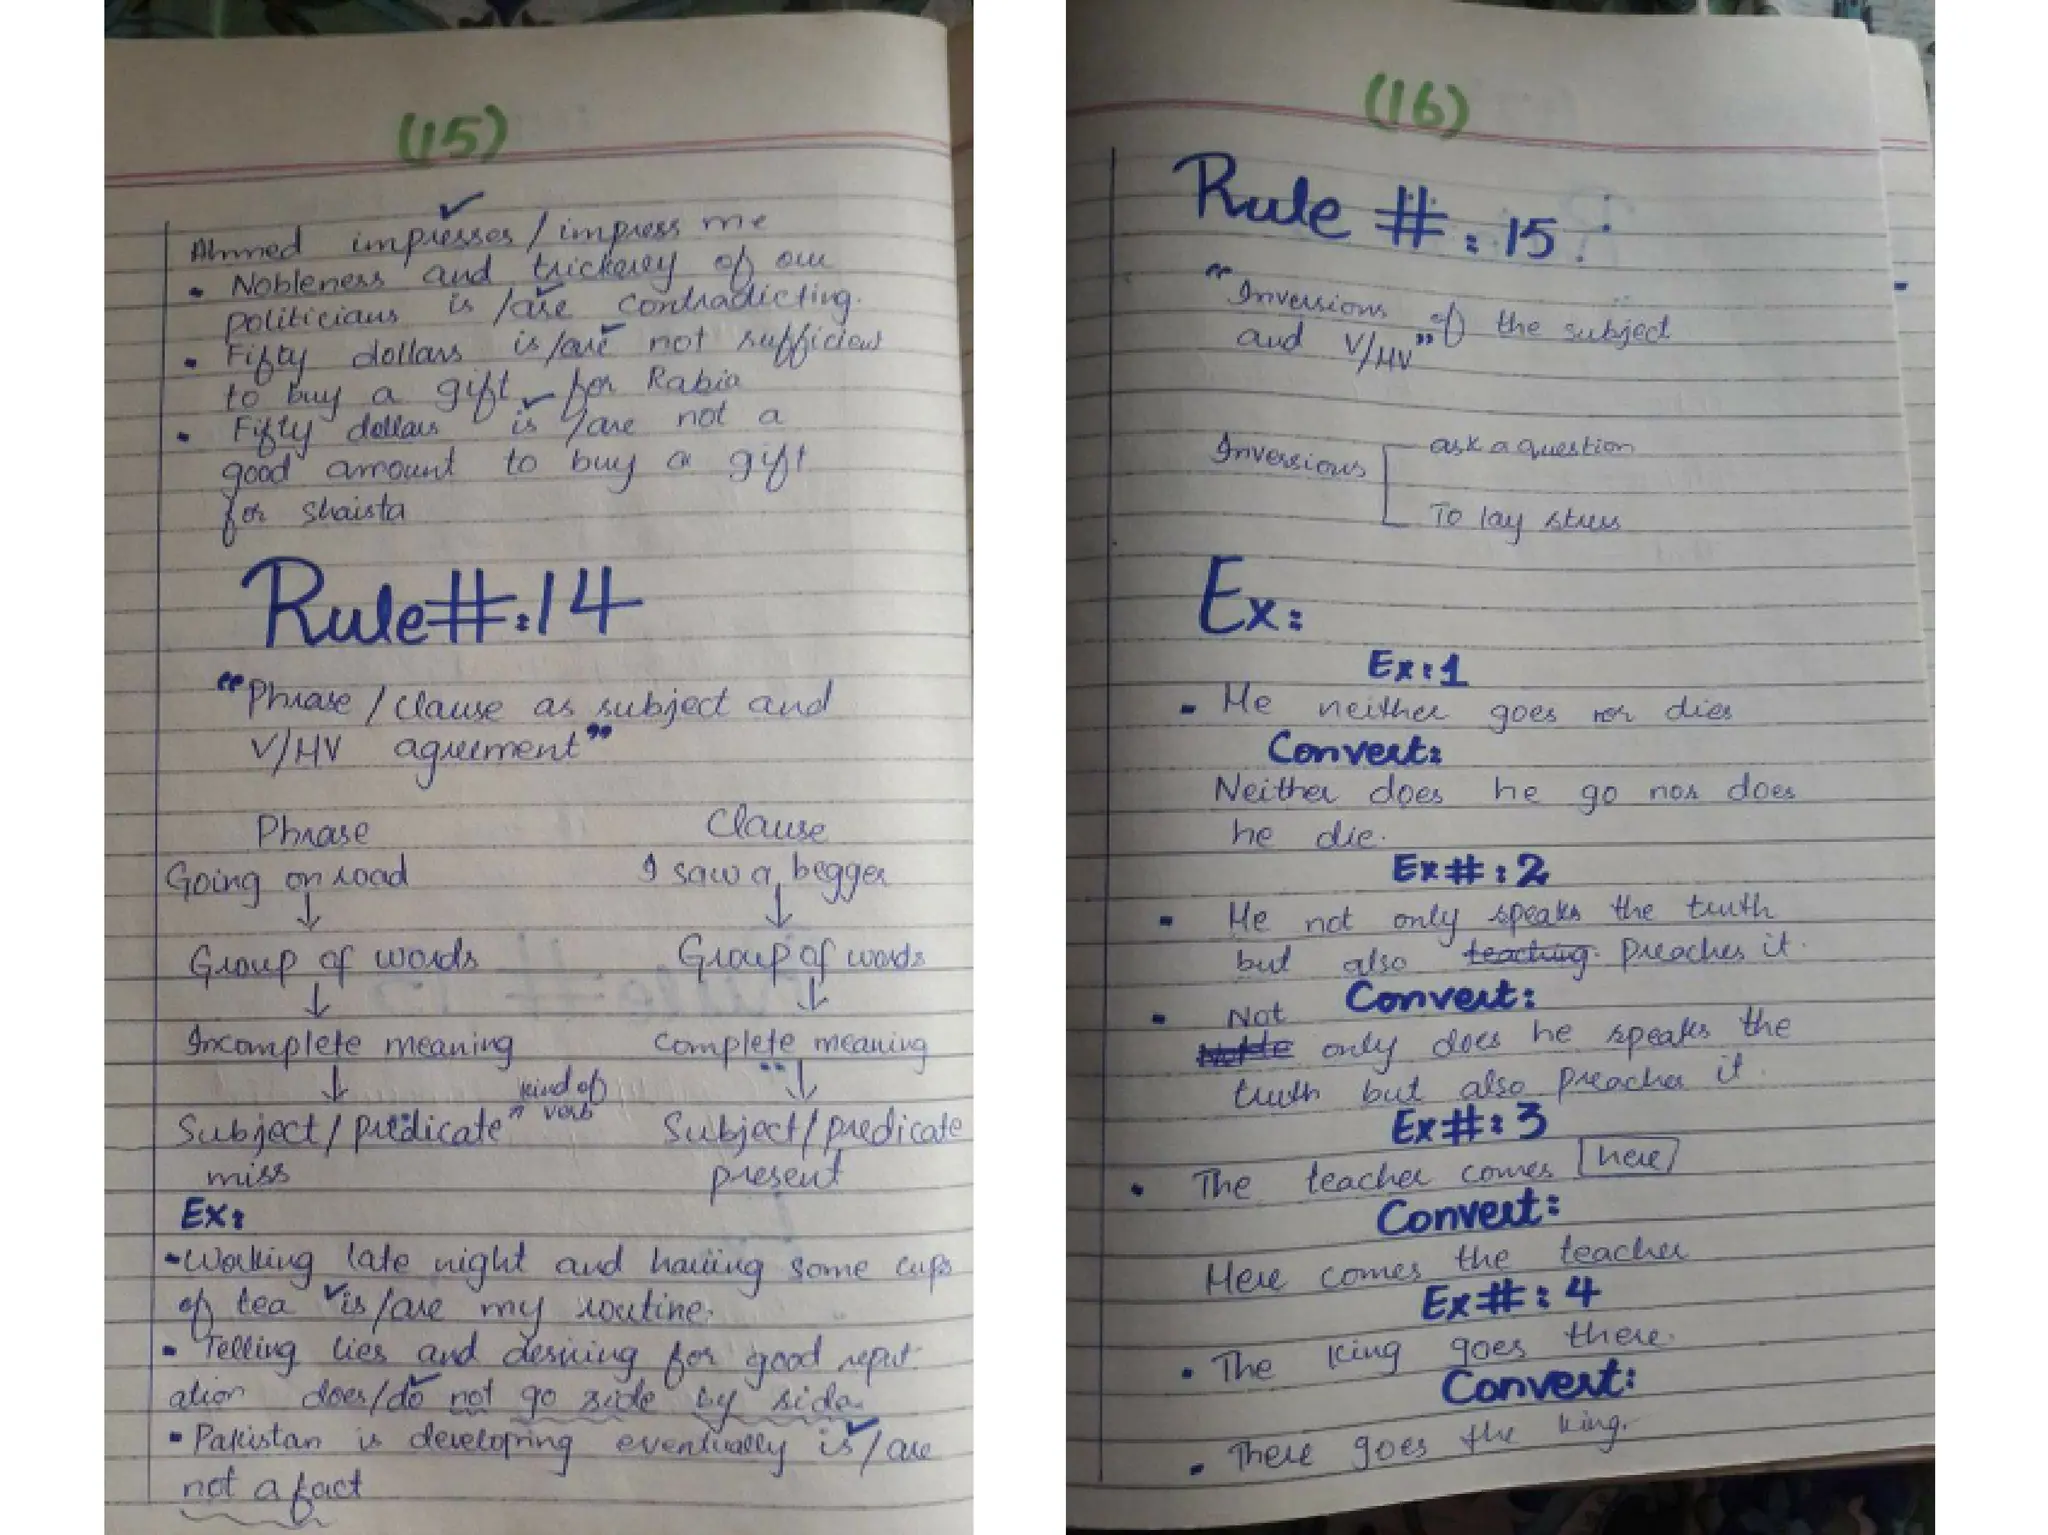 (15)
Ahmed impresses / impress me
• Nobleness and trickerey of our
politicians is / are contradicting.
• Fifty dollars is/are not sufficient
to buy a gift for Rabia
• Fifty dollars is /are not a
good amount to buy a gift
for Shaista
Rule#:14
"Phrase / Clause as subject and
V/HV agreement"
Phrase Clause
Going on road I saw a begger
Group of words Group of words
Incomplete meaning Complete meaning
kind of
Subject / predicate " verb Subject / predicate
miss present
Ex:
• Walking late night and having some cups
of tea is/are my routine.
• Telling lies and desiring for good reput-
ation does/do not go side by side.
• Pakistan is developing eventually is / are
not a fact
(16)
Rule #: 15:
"Inversions of the subject
and V/HV"
Inversions ask a question
To lay stress
Ex:
Ex:1
• He neither goes nor dies
Convert:
Neither does he go nor does
he die.
Ex#:2
• He not only speaks the truth
but also teaching. preaches it.
Convert:
• Not
only does he speaks the
truth but also preaches it.
Ex#:3
• The teacher comes here
Convert:
Here comes the teacher
Ex#:4
• The king goes there.
Convert:
• There goes the king.